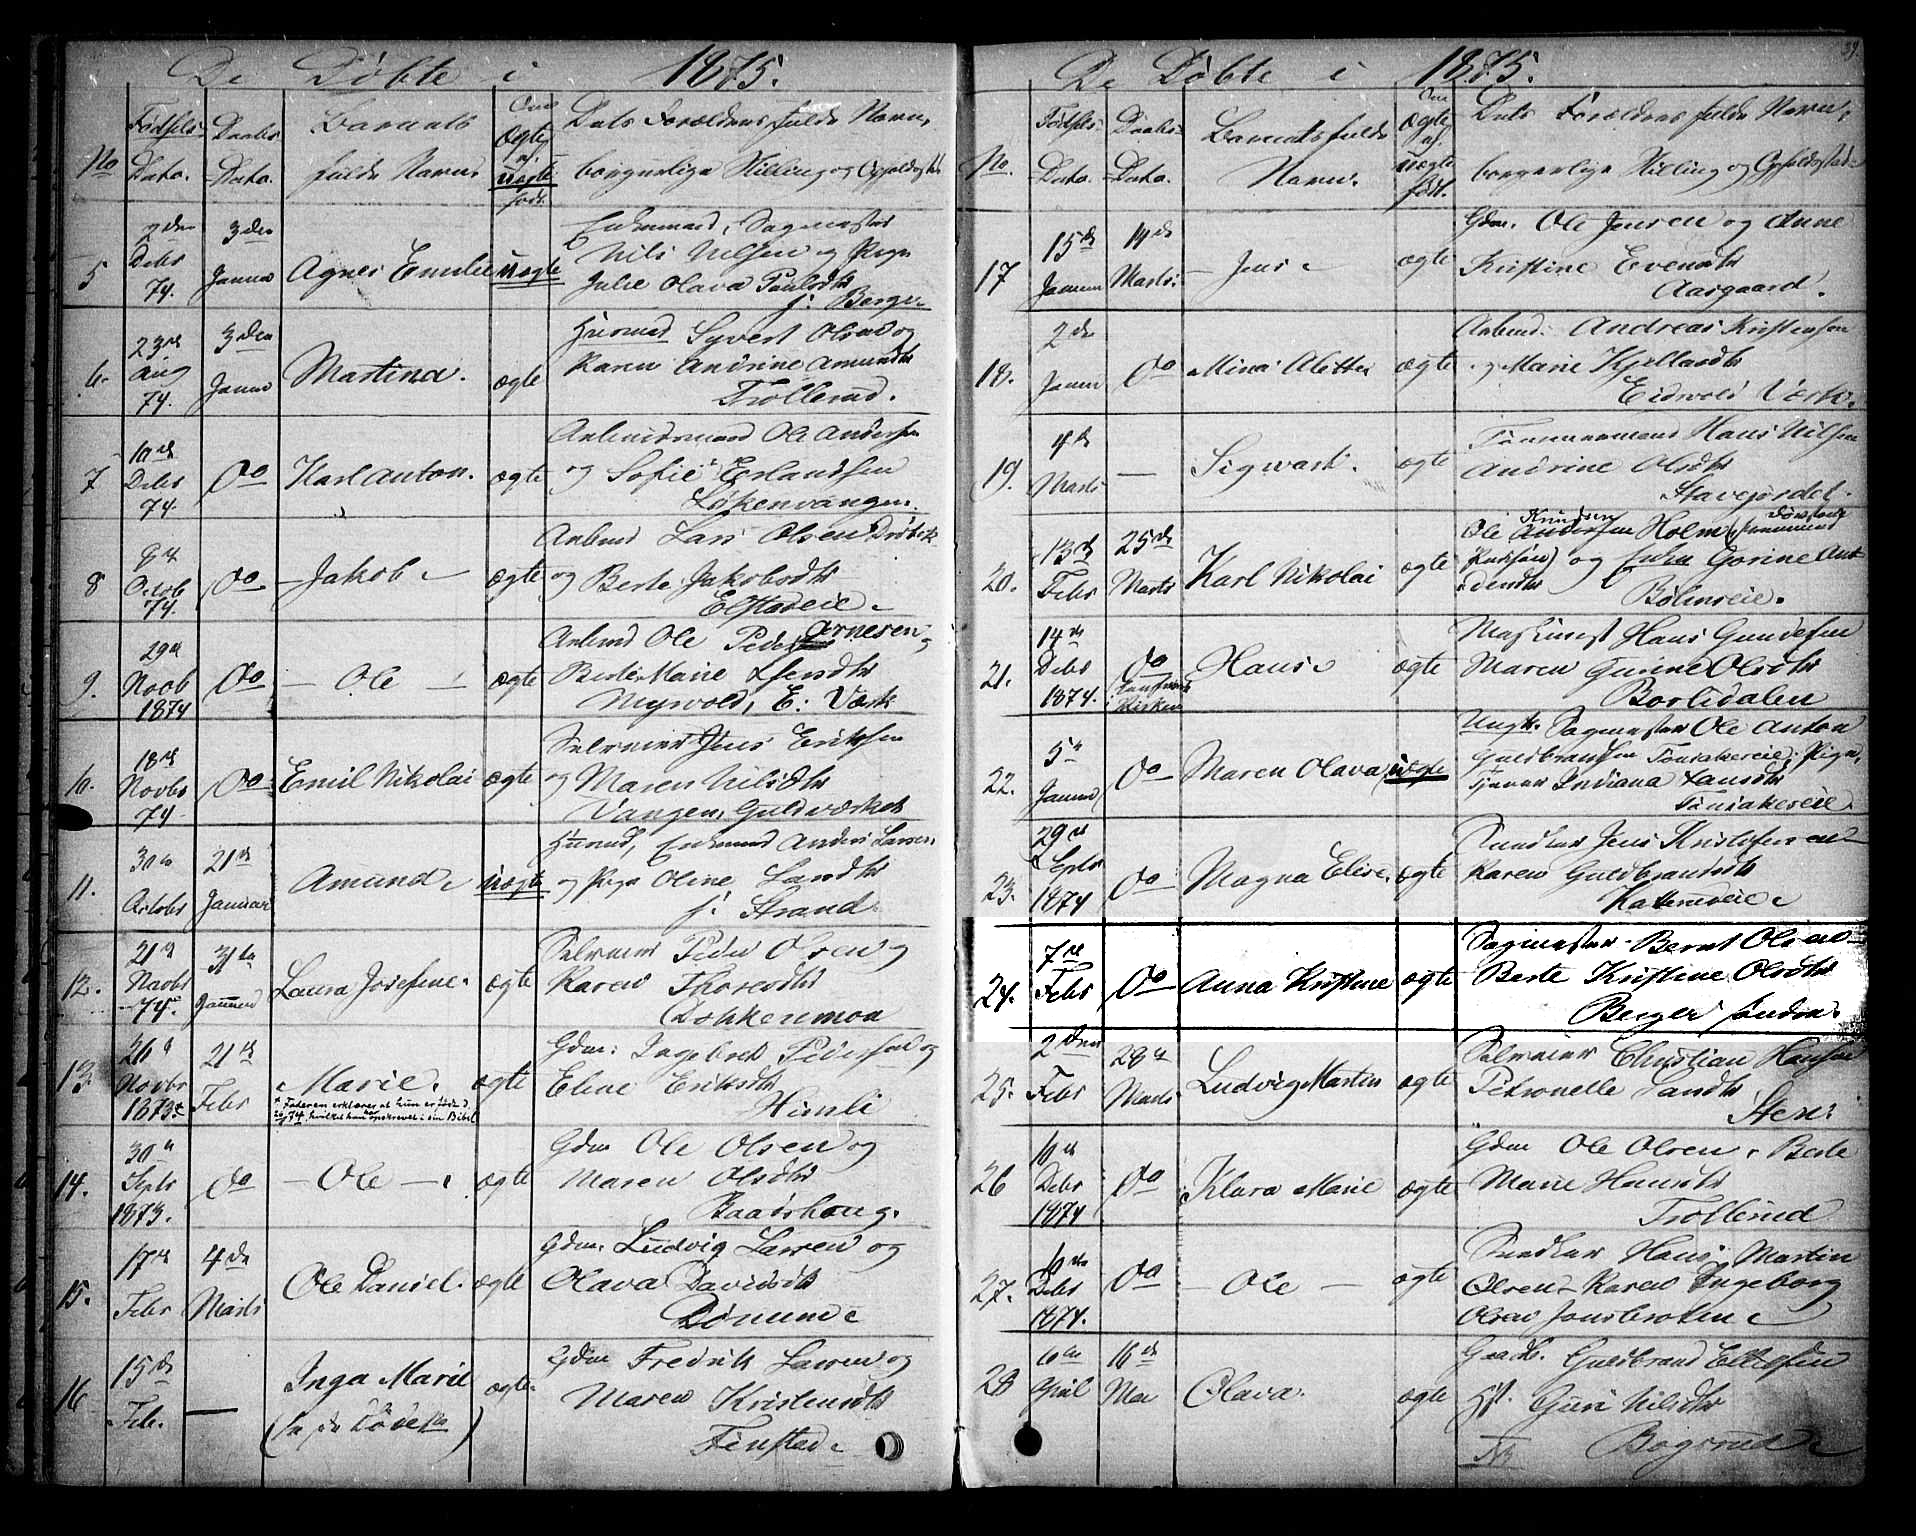 De Døbte i 1875.
No
Fødsels-
Data.
Daabs-
Data.
Barnets
fulde Navn.
Om
ægte
el.
uægte
født.
Dets Forældres fulde Navn,
borgerlige Stilling og Opholdssted
5
2den
Debr
74.
3den
Januar
Agnes Emilie
uægte
Enkemand, Sagmester
Nils Nilsen og Pige
Julie Olava Paulsdtr
Berger
6.
23de
Aug
74.
3den
Januar
Martina.
ægte
Husmd Syvert Olsen og
Karen Andrine Amundsdtr
Trollerud.
7
10de
Debr
74.
Do
Karl Anton.
ægte
Arbeidsmand Ole Andersen
og Sofie Erlandsen
Løkenvangen.
8
Octob
74.
Do
Jakob
ægte
Arbmd Lars Olsen
og Berte Jakobsdtr
Elstadeie
9.
29de
Novb
1874
Do
Ole
ægte
Arbmd Ole Arnesen
Berte Marie
Nyvold, E. Værk
10.
18de
Novbr
74
Do
Emil Nikolai
ægte
Selveier Jens Eriksen
og Maren Nilsdtr
Vangen, Guldværket
11.
30te
Octobr
21de
Januar
Amund
uægte
Husmd, Enkemand Anders Larsen
og Pige Oline Larsdtr
Strand
12.
21de
Novbr
74.
31te
Januar
Laura Josefine.
ægte
Selveier Peder Olsen og
Karen Thoresdtr
Dokkenmoen
13.
26de
Novbr
1873
21de
Febr
Marie.
* Faderen erklærer at hun er føde d.
26/ 74, hvilket han har opskrevet i sin Bibel
ægte
Gdm: Ingebret Pedersen og
Eline Eriksdtr
Himli
14.
30te
Septr
1873.
Do
Ole
ægte
Gdm Ole Olsen og
Maren Olsdtr
Baarshaug.
15.
17de
Febr
4de
Marts
Ole Daniel.
ægte
Gdm. Ludvig Larsen og
Olava Davidsdtr
Dønnum
16
15de
Feb.
—
Inga Marie
(se de Døde)
ægte.
Gdm Fredrik Larsen og
Maren Kristensdtr
Finstad
39.
De Døbte i 1875.
No.
Fødsels-
Data.
Daabs-
Data.
Barnets fulde
Navn.
Om
ægte
el.
uægte
født.
Dets Forældres fulde Navn,
borgerlige Stilling og Opholdssted
17
15de
Januar
14de
Marts.
Jens
ægte
Gdm. Ole Jensen og Anne
Kristine Evensdtr
Aasgaard.
18.
2den
Januar
Do
Mina Alette
ægte
Arbmd. Andreas Kristensen
og Marie Kjellandsdtr
Eidsvold Værk.
19.
4de
Marts
—
Sigwart.
ægte
Tømmermand Hans Nilsen
Andrine Olsdtr
Stavejordet.
20.
13de
Febr
25de
Marts
Karl Nikolai
ægte
Knudsen
Ole Andersen Holm
og Enken Gorine
Bølerseie.
21.
14de
Debr
1874.
Do
Hans
ægte
Maskinist Hans Gundersen
Maren Gurine Olsdtr
Borlidalen
22.
5te
Januar
Do
Maren Olava
uægte
Ungk. Sagmester Ole Anton
Guldbrandsen Tønsakereie; Pige,
Tjener Indiana Larsdtr
Tønsakereie.
23.
29de
Septr
1874
Do
Magna Elise.
ægte
Snedker Jens Kristofersen
Karen Guldbrandsdtr
24.
7de
Febr
Do
Anna Kristine
ægte
Sagmester Bernt Olsen
Berte Kristine Olsdtr
Berger søndre.
25.
2den
Febr
28de
Marts
Ludvig Martin
ægte
Selveier Christian Hansen
Petronelle Larsdtr
Sten.
26
10de
Debr
1874
Do
Klara Marie
ægte
Gdm Ole Olsen, Berte
Marie Hansdtr
Trollerud
27.
10de
Debr
1874.
Do
Ole
ægte
Snedker Hans Martin
Olsen Karen Ingeborg
Olsen Jonsbroten
28
April
16de
Mai
Olava.
ægte
Guldbrand Ellefsen
Guri Nilsdtr
Bogsrud